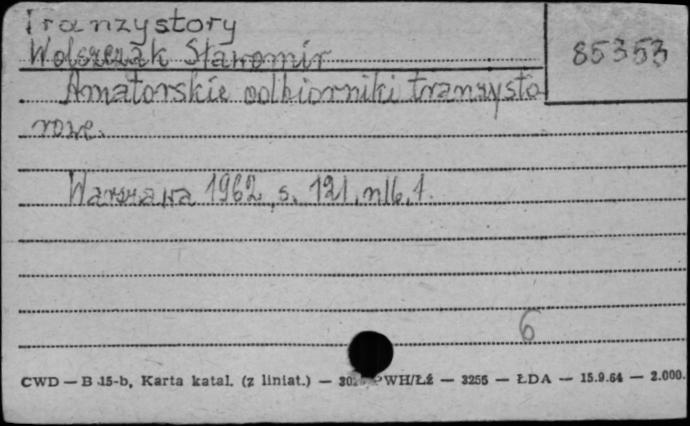 Tranzystory
Wolszczak Sławomir
85353
Amatorskie odbiorniki tranzysto
rowe.
Warszawa 1962, s. 121, nlb. 1.
6
CWD — B 15-b, Karta katal. (z liniat.) — PWH/Łź — 3255 — ŁDA — 15.9.64 — 2.000.